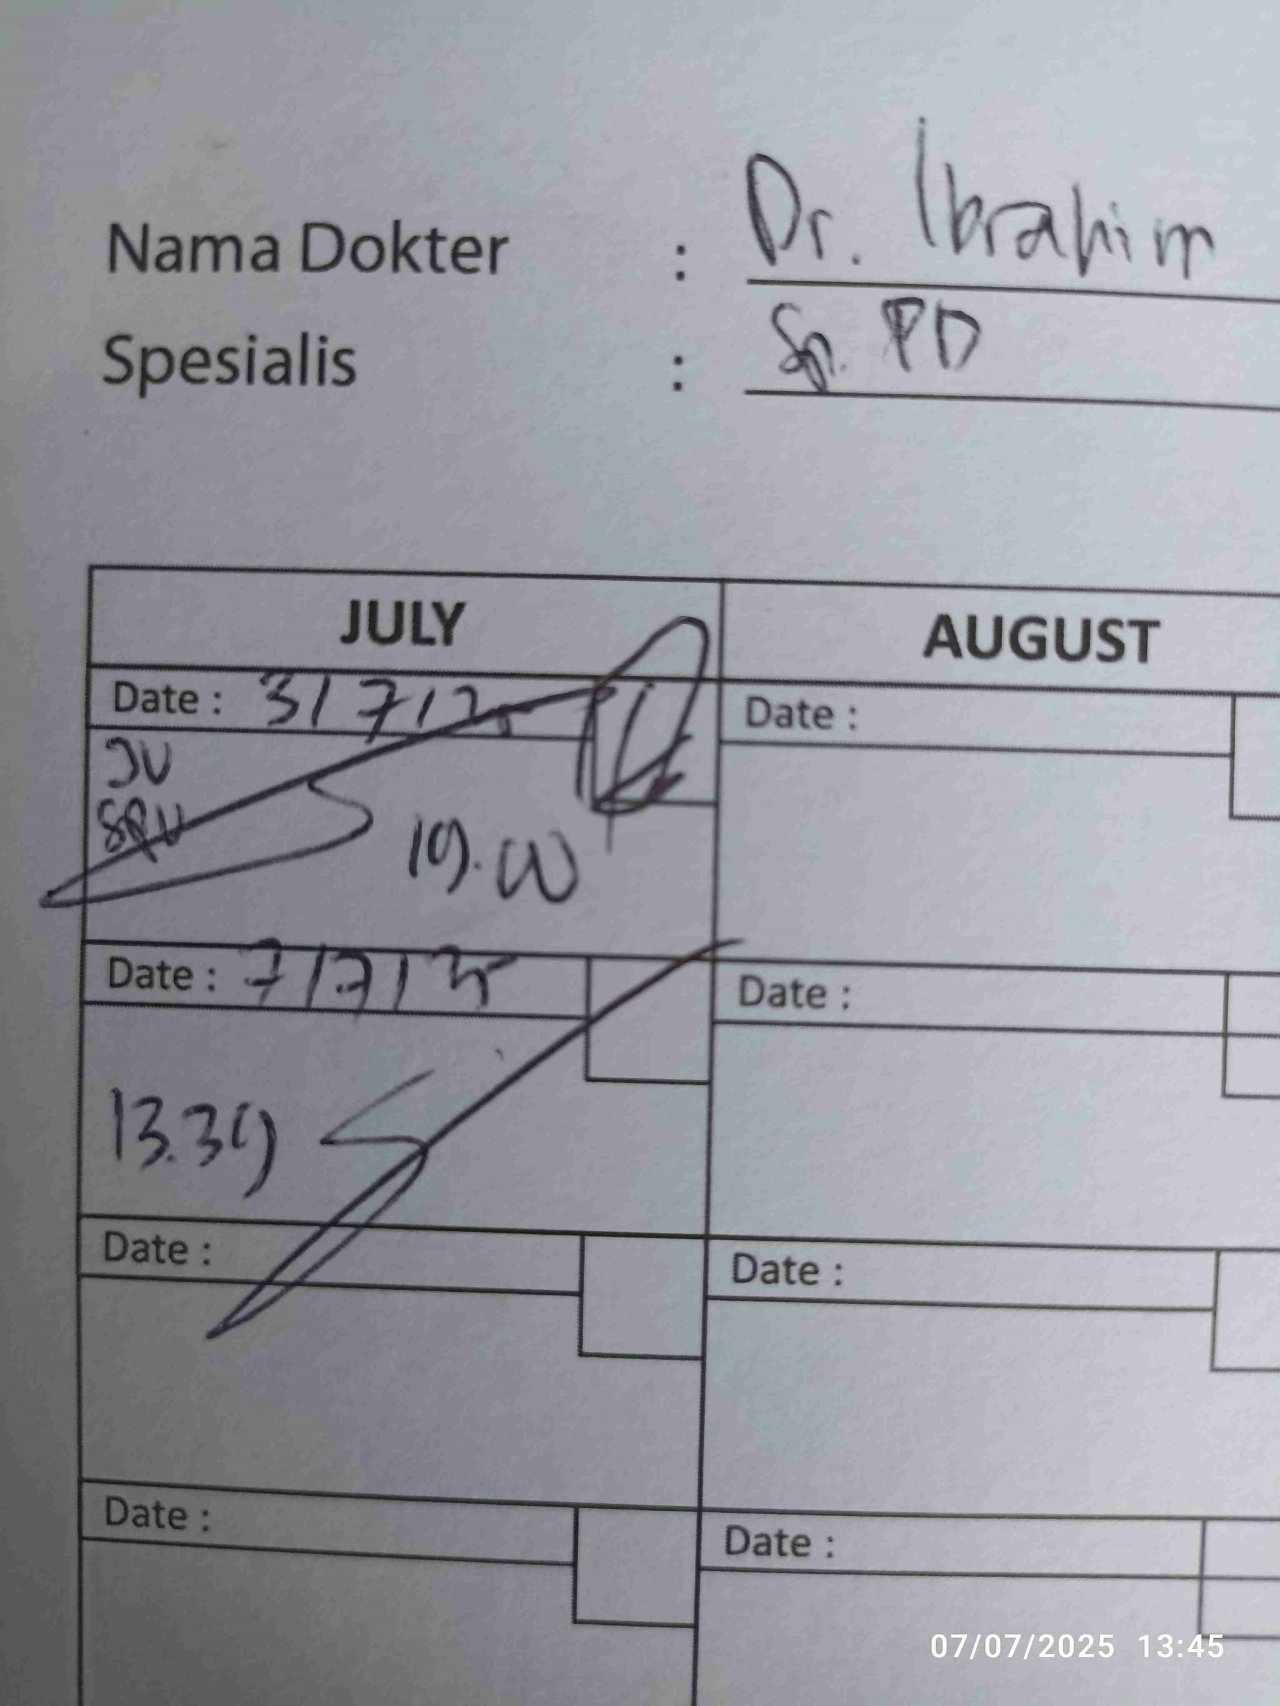 Nama Dokter : Dr. Ibrahim
Spesialis : Sp. PD
JULY
AUGUST
Date : 3/7/25
Date :
JV
SPV
19.00
Date : 7/7/25
Date :
13.39
Date :
Date :
Date :
Date :
07/07/2025 13:45